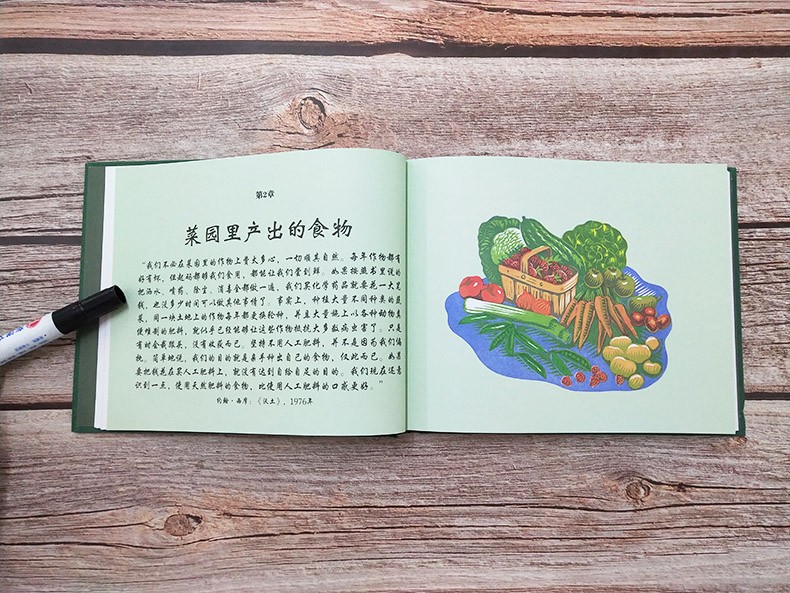 第2章
菜园里产出的食物
“我们不必在菜园里的作物上费太多心，一切顺其自然。每年作物都有
好有坏，但起码都够我们食用，都能让我们尝到鲜。如果按照书里说的
把洒水、喷药、除虫、消毒全都做一遍，我们买化学药品就要花一大笔
钱，也没多少时间可以做其他事情了。事实上，种植大量不同种类的蔬
菜，同一块土地上的作物每年都更换轮种，并且大量施上以各种动物粪
便堆制的肥料，就似乎已经能够让这些作物抵抗大多数病虫害了。只是
有时会栽跟头，没有收获而已。坚持不用人工肥料，并不是因为我们偏
执。简单地说，我们的目的就是亲手种出自己的食物，仅此而已。如果
要把钱花在买人工肥料上，就没有达到自给自足的目的。我们现在还意
识到一点，使用天然肥料的食物，比使用人工肥料的口感更好。”
约翰·西摩：《沃土》，1976年